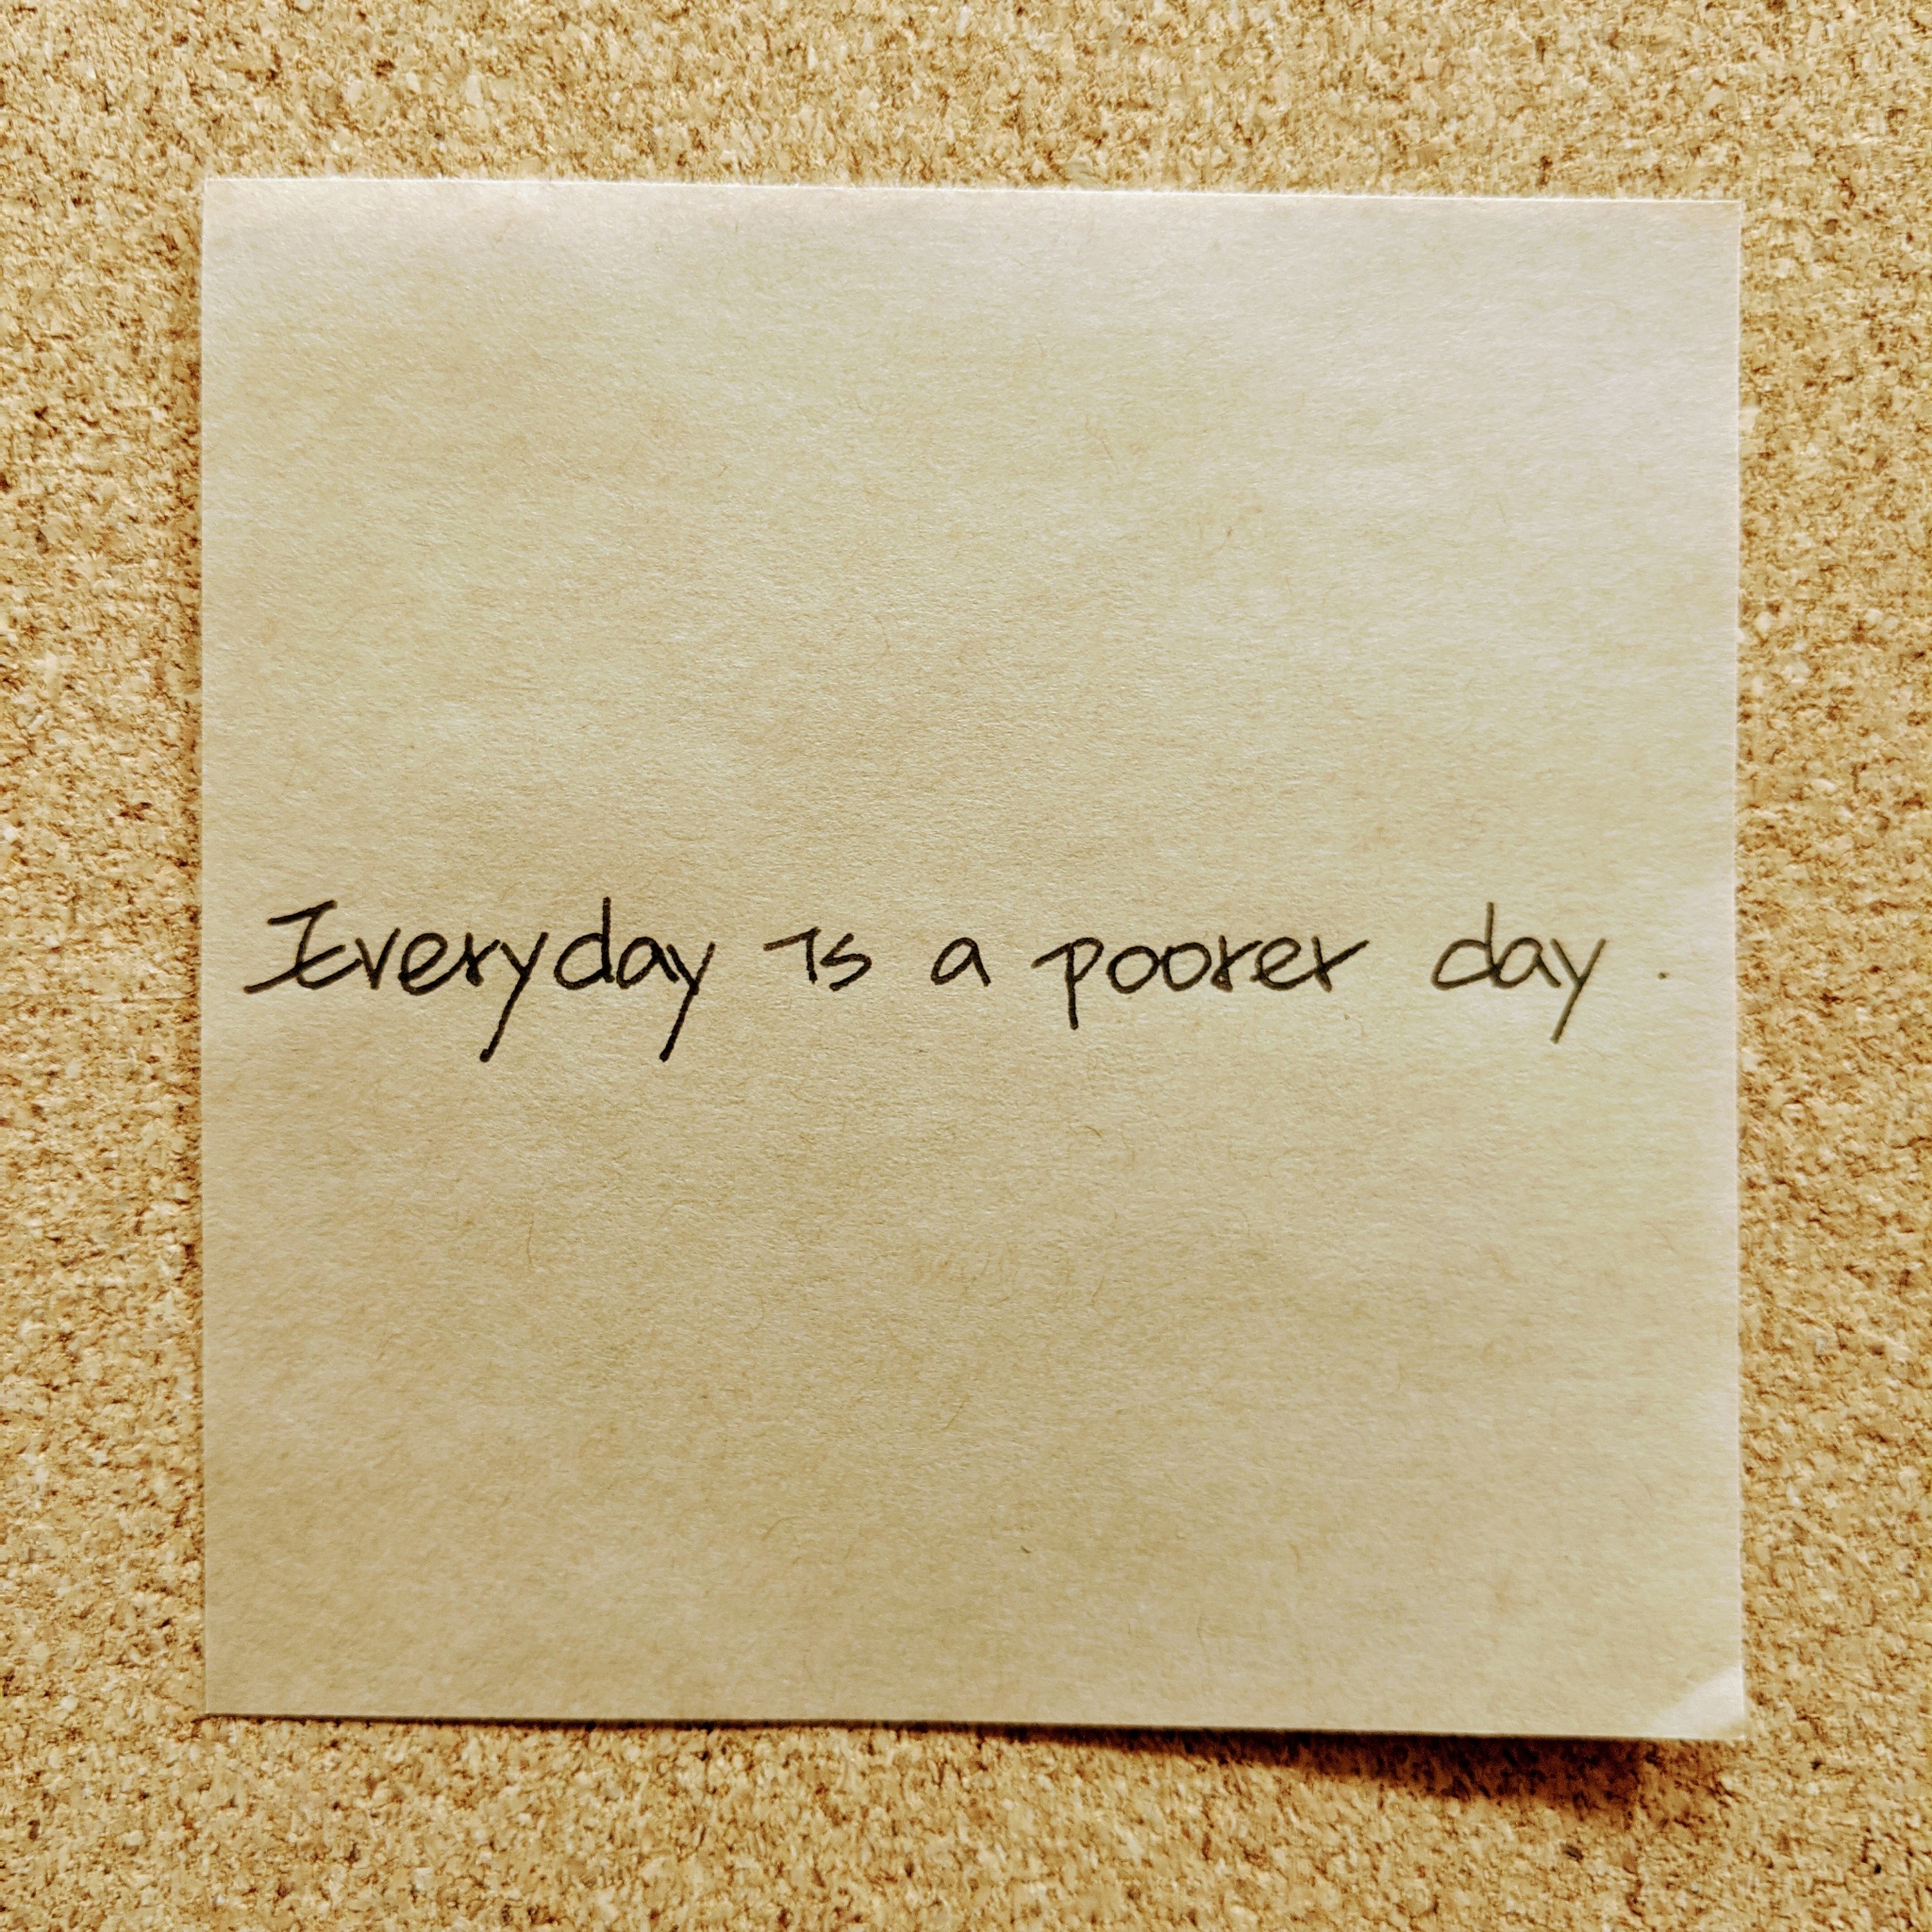 Everyday is a poorer day.